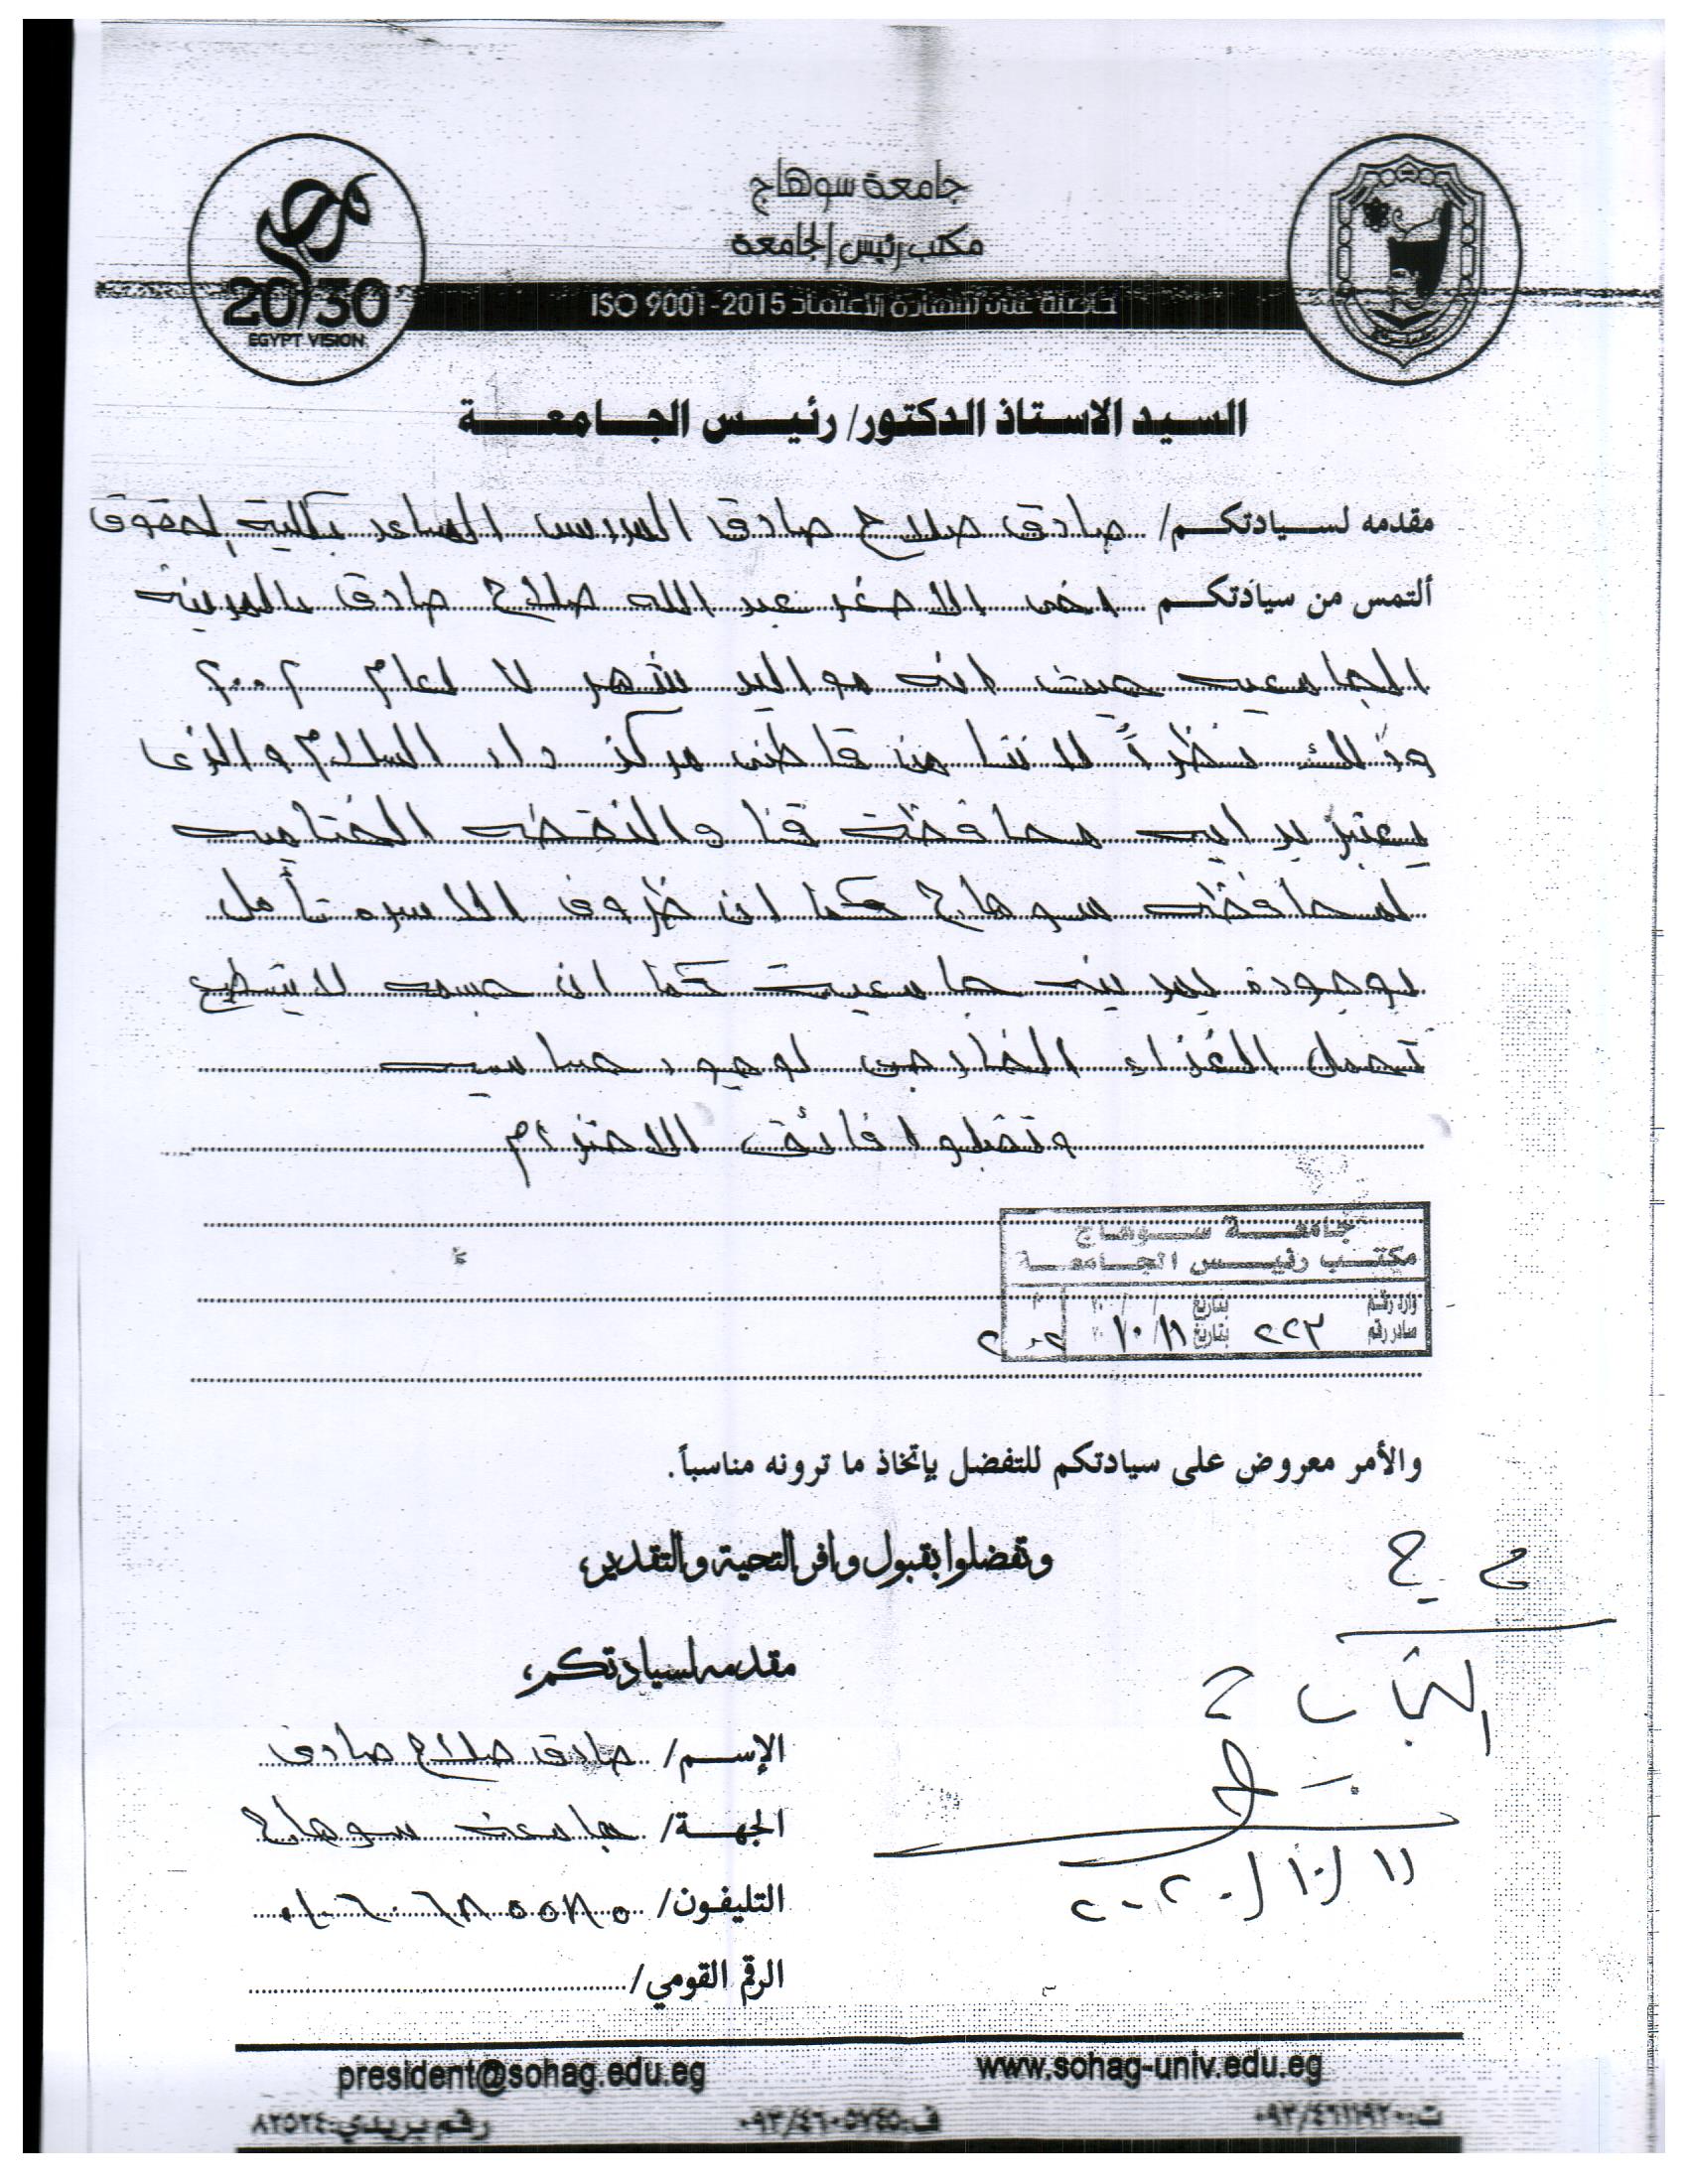 جامعة سوهاج
مكتب رئيس الجامعة
مصر
20/30
EGYPT VISION
حاصلة على شهادة الاعتماد ISO 9001-2015
السيد الاستاذ الدكتور/ رئيس الجامعة
مقدمه لسيادتكم/ صادق صلاح صادق المدرس المساعد بكلية الحقوق
ألتمس من سيادتكم اخى الاصغر عبد الله صلاح صادق بالمدينة
الجامعيه حيث انه مواليد شهر ٧ لعام ٢٠٠٢
وذلك نظراً لاننا من قاطنى مركز دار السلام والذى
يعتبر بدايه محافظة قنا والنقطه الختاميه
لمحافظه سوهاج كما ان ظروف الاسره تأمل
لوجوده بمدينه جامعية كما ان جسمه لا يستطيع
تحمل الغذاء الخارجى لوجود حساسيه
وتقبلوا فائق الاحترام
جامعة سوهاج
مكتب رئيس الجامعة
وارد رقم بتاريخ / / ٢٠٠ م
صادر رقم ٢٢٣ بتاريخ ١١/١٠ ٢٠٢٠
والأمر معروض على سيادتكم للتفضل بإتخاذ ما ترونه مناسباً.
وتفضلوا بقبول وافر التحية والتقدير،
مقدمه لسيادتكم،
الإسم/ صادق صلاح صادق
الجهة/ جامعة سوهاج
التليفون/ ٠١٠٦٠٦٨٥٥٧٨٥
الرقم القومي/
١١/١٠/٢٠٢٠
president@sohag.edu.eg www.sohag-univ.edu.eg
ت:٠٩٣/٤٦١١٩٢٠ ف:٠٩٣/٤٦٠٥٧٤٥ رقم بريدي:٨٢٥٢٤